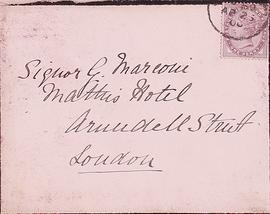 AP 23
Signor G. Marconi
Mathis Hotel
Arundell Street
London